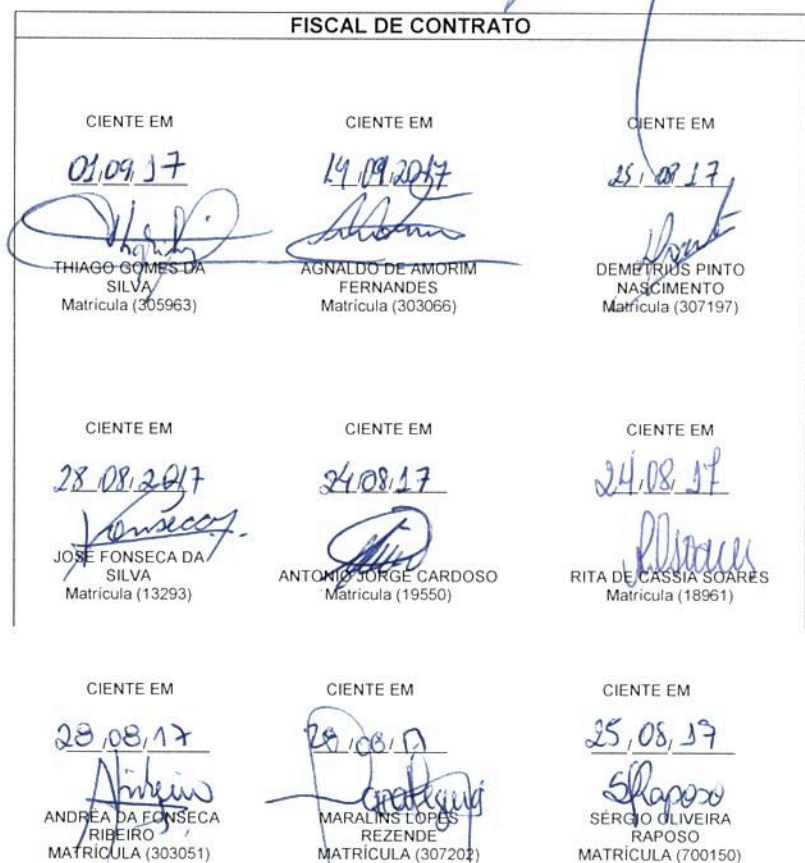 FISCAL DE CONTRATO
CIENTE EM
01,09,17
THIAGO GOMES DA
SILVA
Matricula (305963)
CIENTE EM
14,09,2017
AGNALDO DE AMORIM
FERNANDES
Matricula (303066)
CIENTE EM
25,08,17
DEMETRIUS PINTO
NASCIMENTO
Matricula (307197)
CIENTE EM
28,08,2017
Fonseca
JOSÉ FONSECA DA
SILVA
Matricula (13293)
CIENTE EM
24,08,17
ANTONIO JORGE CARDOSO
Matricula (19550)
CIENTE EM
24,08,17
RITA DE CASSIA SOARES
Matricula (18961)
CIENTE EM
28,08,17
ANDRÉA DA FONSECA
RIBEIRO
MATRÍCULA (303051)
CIENTE EM
28,08,17
MARALINS LOPES
REZENDE
MATRÍCULA (307202)
CIENTE EM
25,08,17
SRaposo
SÉRGIO OLIVEIRA
RAPOSO
MATRÍCULA (700150)